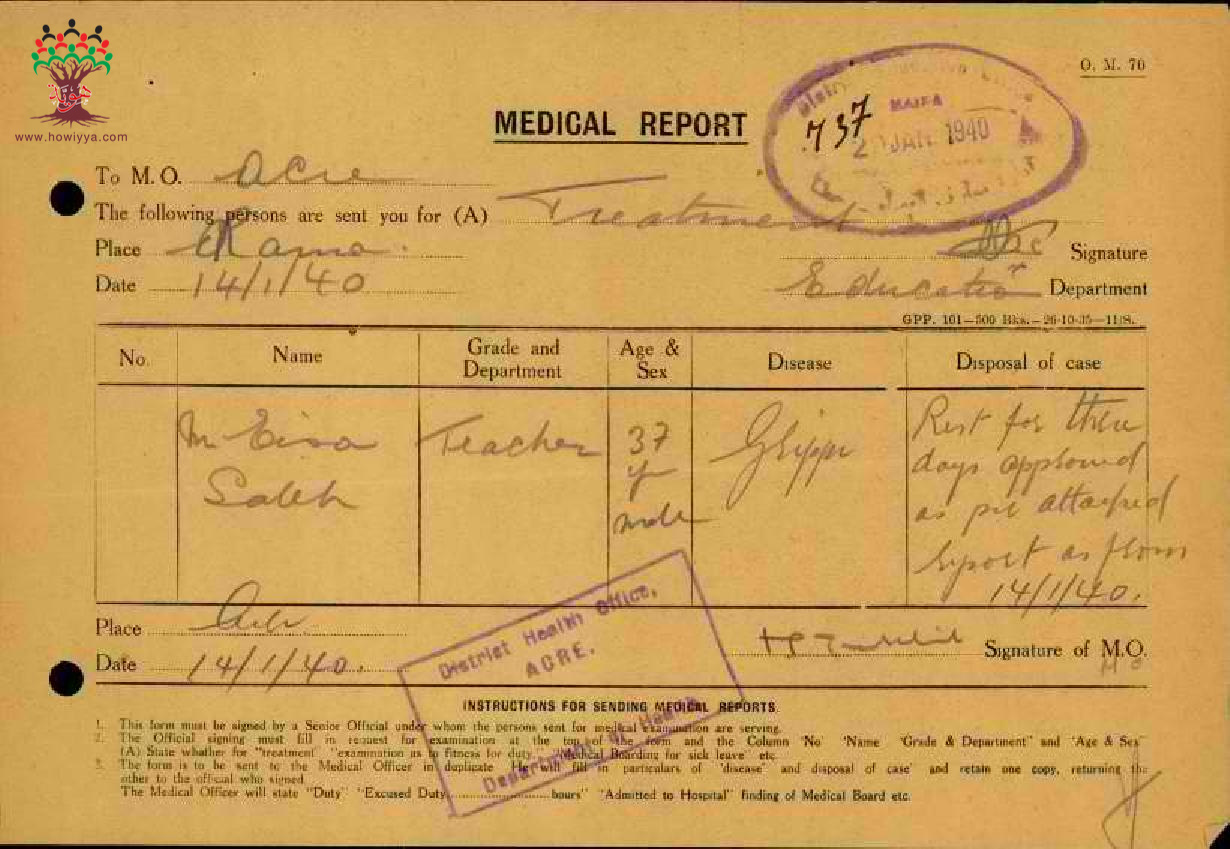 www.howiyya.com
O. M. 70
MEDICAL REPORT
HAIFA
737
2 JAN 1940
To M. O. Acre
The following persons are sent you for (A) Treatment
Place Rama
Signature
Date 14/1/40
Education Department
GPP. 101—500 Bks.—26-10-35—1118.
No. Name Grade and Department Age & Sex Disease Disposal of case
M Eissa Saleh Teacher 37 y male Grippe Rest for three
days approved
as per attached
report as from
14/1/40.
Place Acre
Date 14/1/40.
Signature of M.O.
District Health Office,
ACRE.
Department of Health
INSTRUCTIONS FOR SENDING MEDICAL REPORTS.
1. This form must be signed by a Senior Official under whom the persons sent for medical examination are serving.
2. The Official signing must fill in request for examination at the top of the form and the Column 'No' 'Name' 'Grade & Department" and 'Age & Sex"
(A) State whether for "treatment" "examination as to fitness for duty" "Medical Boarding for sick leave" etc.
3. The form is to be sent to the Medical Officer in duplicate He will fill in particulars of 'disease" and disposal of case" and retain one copy, returning the
other to the official who signed.
The Medical Officer will state "Duty" "Excused Duty ............ hours" "Admitted to Hospital" finding of Medical Board etc.